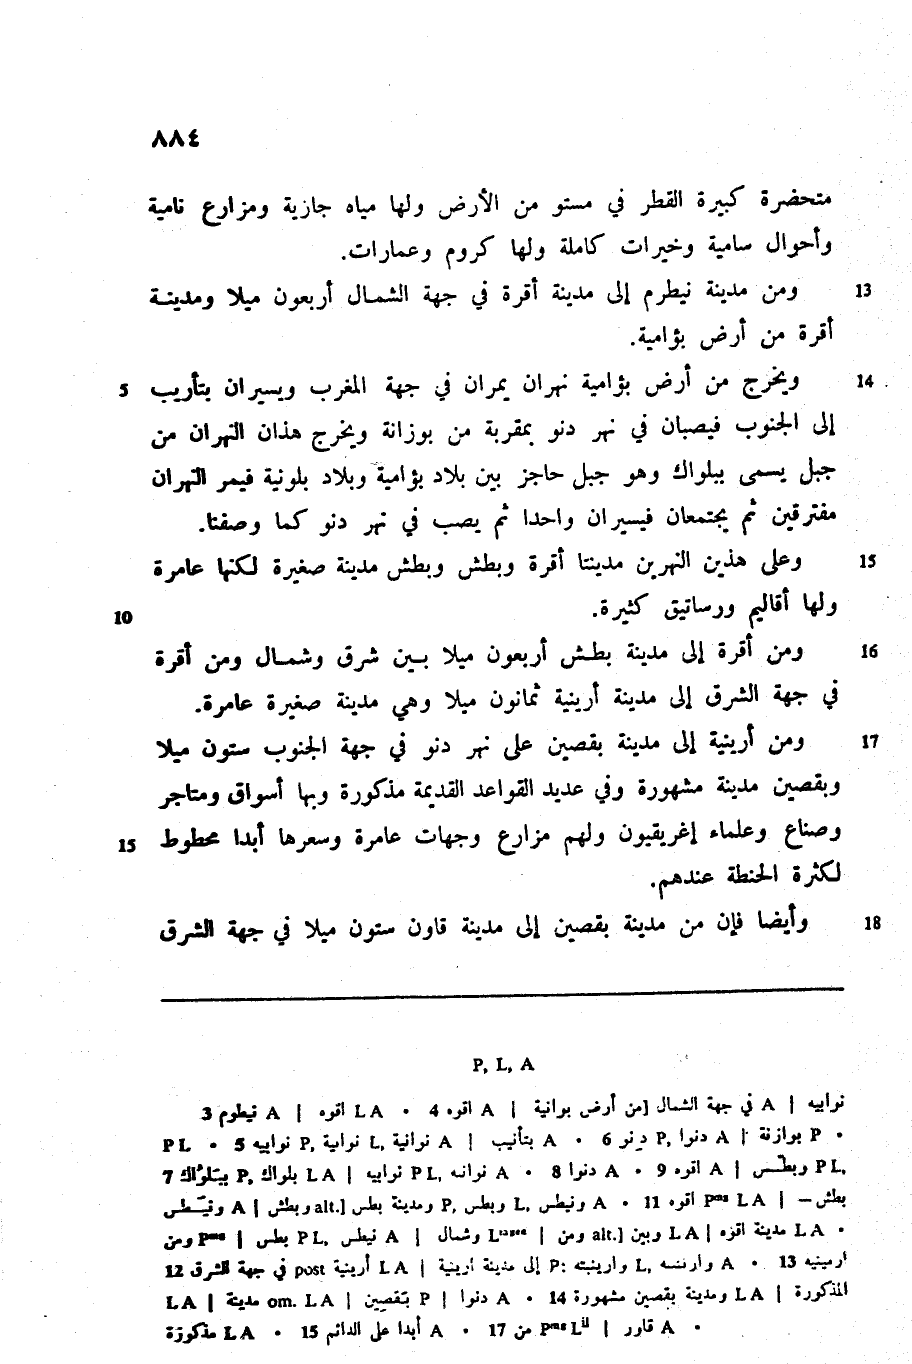 ٨٨٤
متحضرة كبيرة القطر في مستو من الأرض ولها مياه جارية ومزارع نامية
وأحوال سامية وخيرات كاملة ولها كروم وعمارات.
13 ومن مدينة نيطرم إلى مدينة أقرة في جهة الشمال أربعون ميلا ومدينة
أقرة من أرض بؤامية.
14 ويخرج من أرض بؤامية نهران يمران في جهة المغرب ويسيران بتأريب 5
إلى الجنوب فيصبان في نهر دنو بمقربة من بوزانة ويخرج هذان النهران من
جبل يسمى ببلواك وهو جبل حاجز بين بلاد بؤامية وبلاد بلونية فيمر النهران
مفترقين ثم يجتمعان فيسيران واحدا ثم يصب في نهر دنو كما وصفنا.
15 وعلى هذين النهرين مدينتا أقرة وبطش وبطش مدينة صغيرة لكنها عامرة
ولها أقاليم ورساتيق كثيرة. 10
16 ومن أقرة إلى مدينة بطش أربعون ميلا بين شرق وشمال ومن أقرة
في جهة الشرق إلى مدينة أرينية ثمانون ميلا وهي مدينة صغيرة عامرة.
17 ومن أرينية إلى مدينة بقصين على نهر دنو في جهة الجنوب ستون ميلا
وبقصين مدينة مشهورة وفي عديد القواعد القديمة مذكورة وبها أسواق ومتاجر
وصناع وعلماء إغريقيون ولهم مزارع وجهات عامرة وسعرها أبدا محطوط 15
لكثرة الحنطة عندهم.
18 وأيضا فإن من مدينة بقصين إلى مدينة قاون ستون ميلا في جهة الشرق
P, L, A
3 نيطوم A | اقوه L A • 4 اقوه A | من أرض بوانية] في جهة الشمال A | نوابيه
P L • 5 نوابيه P, نوابية L, نوانية A | بتأنيب A • 6 دنو P, دنوا A | بوازنة P •
P, بلواك L A | نوابيه P L, نوانه A • 8 دنوا A • 9 اقوه A | P L,
A | وبطش [alt. ومدينة بطس P, وبطس L, ونيطس A • 11 اقوه Pᵐˢ L A | — بطش
ومن Pᵐˢ | بطس P L, نيطس A | وشمال | ومن [alt. وبين L A | مدينة اقزه L A •
12 في جهة الشرق post أرينية L A | إلى مدينة أرينية P: وارينيته L, A • 13 ارمينيه
L A | مدينة om. L A | P | دنوا A • 14 ومدينة بقصين مشهورة L A | المذكورة
مذكورة L A • 15 أبدا على الدائم A • 17 من Pᵐˢ | قاور A •